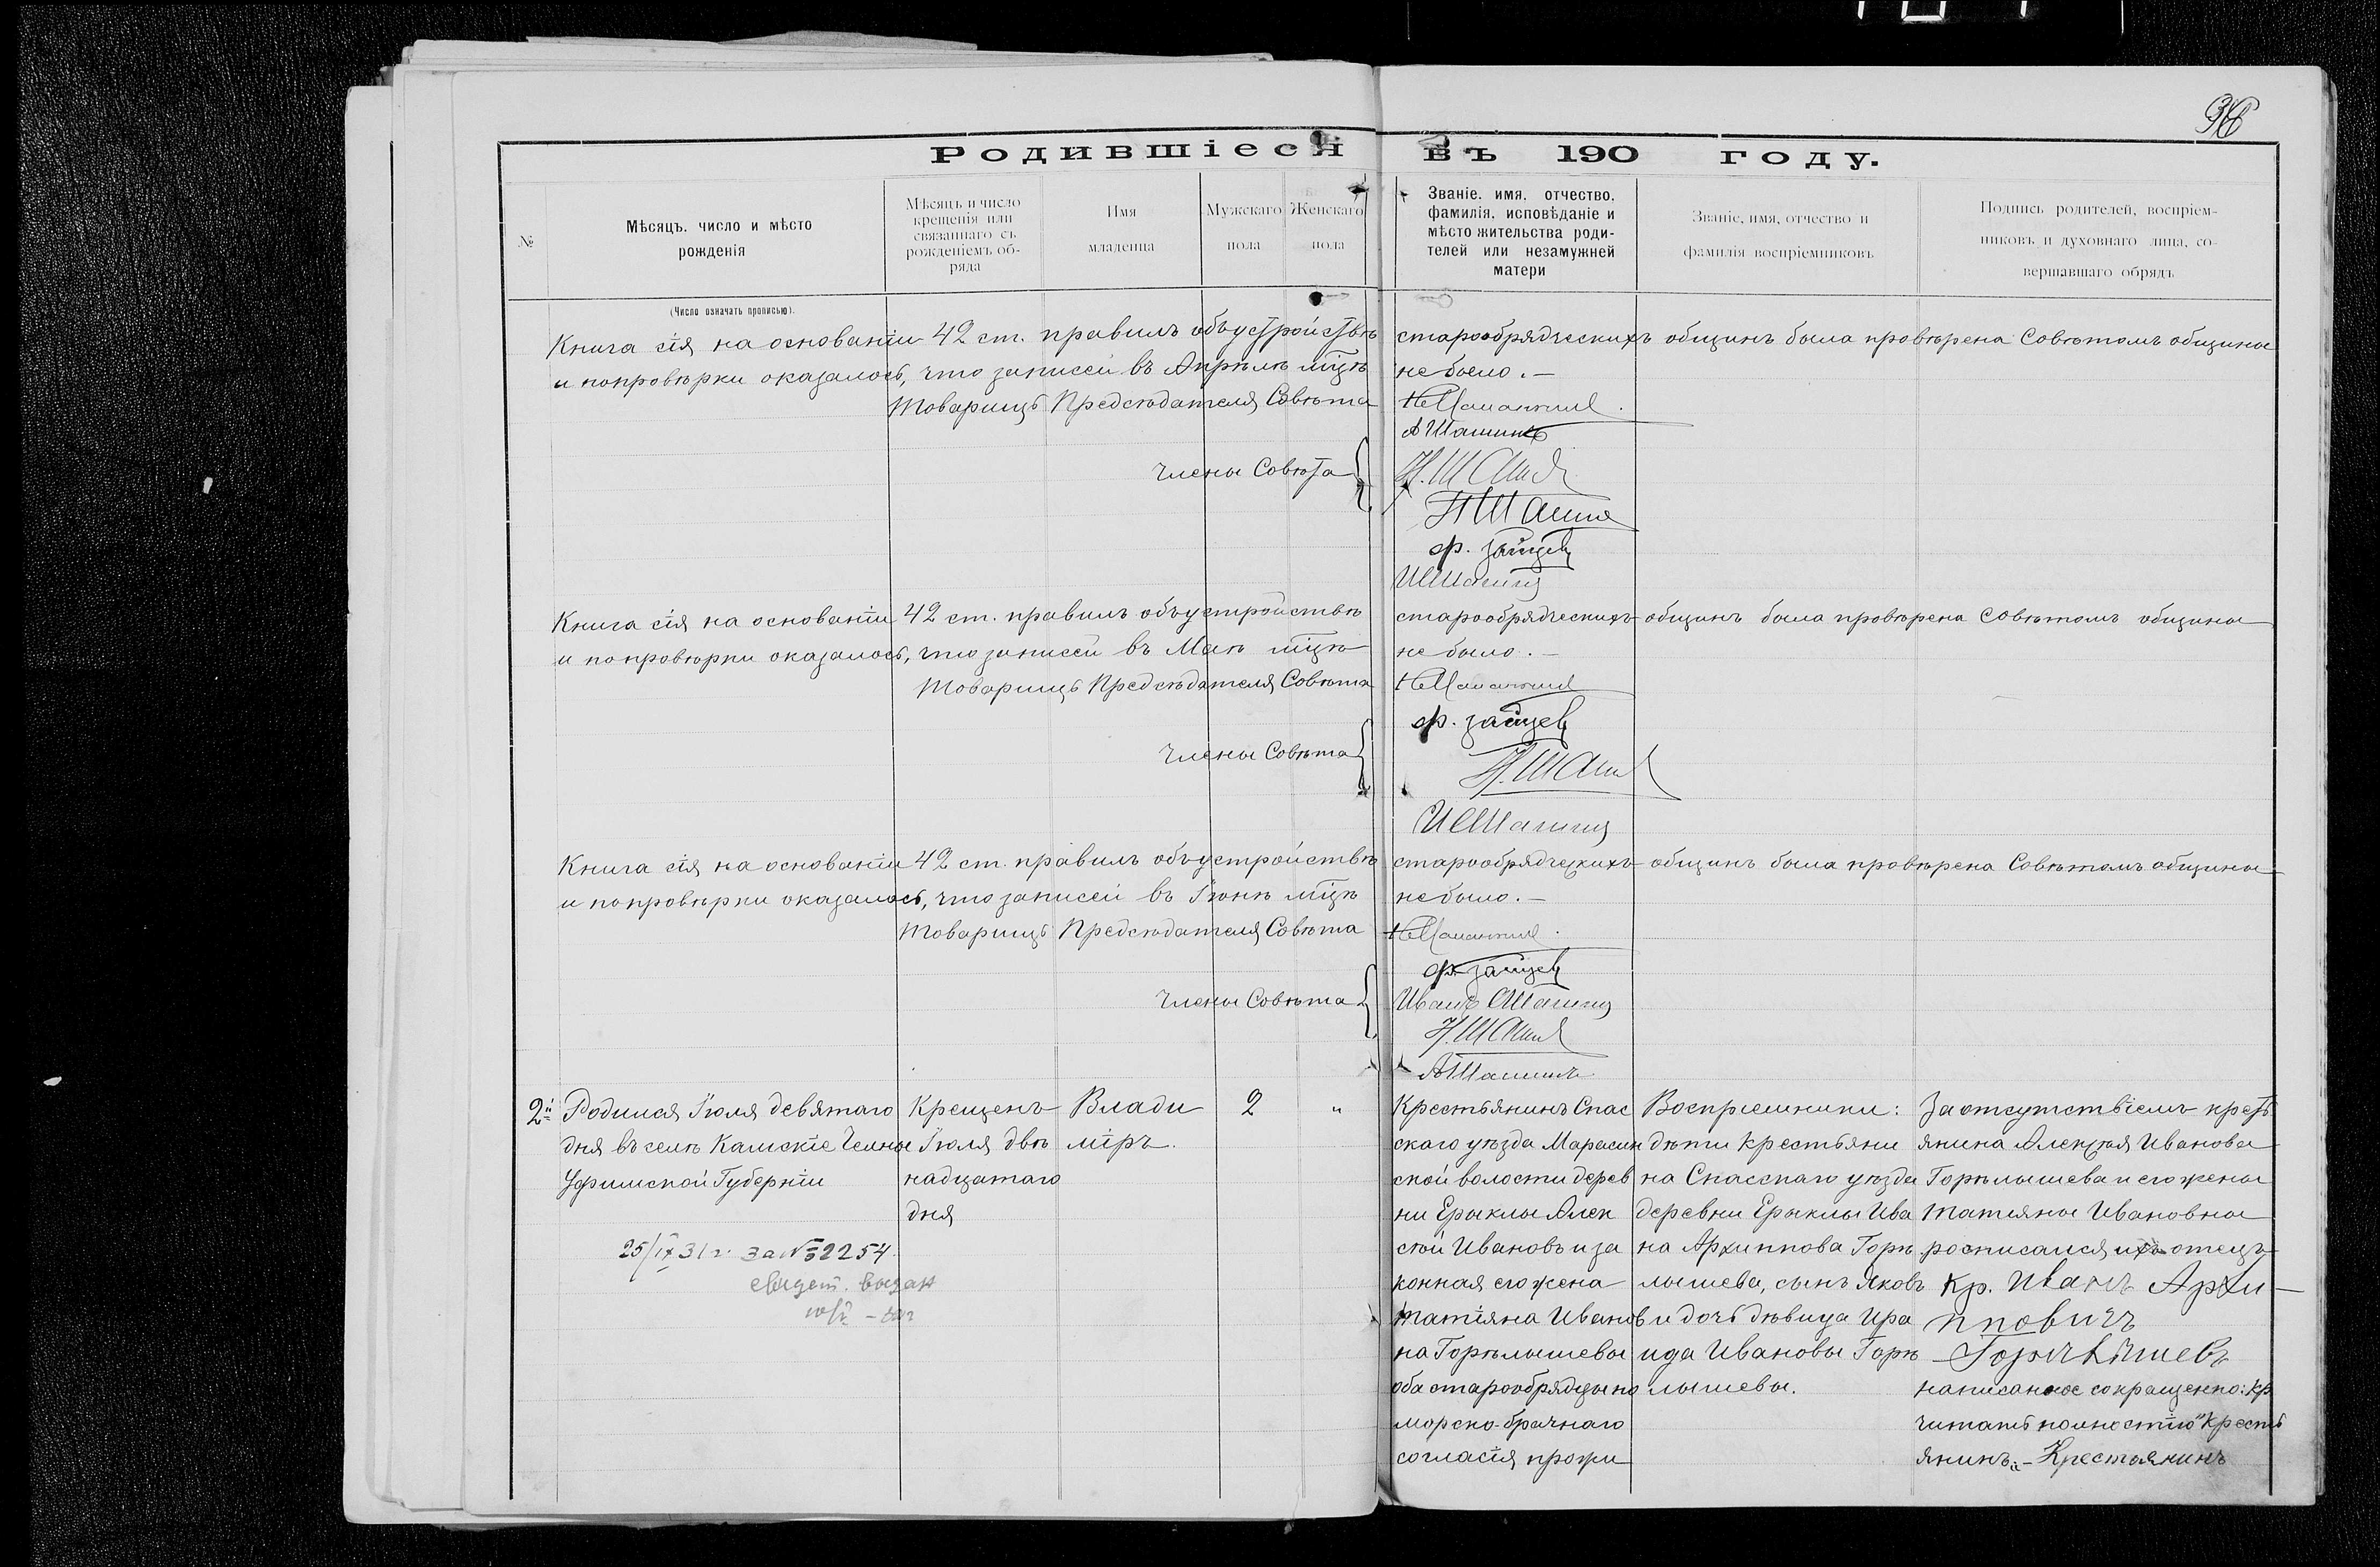 36
Родившіеся въ 190 году.
№
Мѣсяцъ, число и мѣсто рожденія
Мѣсяцъ и число крещенія или связаннаго съ рожденіемъ обряда
Имя младенца
Мужскаго пола
Женскаго пола
Званіе, имя, отчество, фамилія, исповѣданіе и мѣсто жительства родителей или незамужней матери
Званіе, имя, отчество и фамилія воспріемниковъ
Подпись родителей, воспріемниковъ и духовнаго лица, совершавшаго обрядъ
(Число означать прописью).
Книга сія на основаніи 42 ст. правилъ объ устройствѣ старообрядческихъ общинъ была провѣрена Совѣтомъ общины
и по провѣрки оказалось, что записей въ Апрѣлѣ мцѣ не было.—
Товарищъ Предсѣдателя Совѣта
А Шашинъ
Члены Совѣта
Н. Шаш
П Шашин
Ф. Зайцев
И Шашин
Книга сія на основаніи 42 ст. правилъ объ устройствѣ старообрядческихъ общинъ была провѣрена совѣтомъ общины
и по провѣрки оказалось, что записей въ Маѣ мцѣ не было.—
Товарищъ Предсѣдателя Совѣта
Ф. Зайцев
Члены Совѣта
Н. Шаш
И Шашин
Книга сія на основаніи 42 ст. правилъ объ устройствѣ старообрядческихъ общинъ была провѣрена Совѣтомъ общины
и по провѣрки оказалось, что записей въ Іюнѣ мцѣ не было.—
Товарищъ Предсѣдателя Совѣта
Ф. Зайцев
Члены Совѣта
Иванъ Шашин
Н. Шаш
А Шашинъ
2й
Родился Іюля девятаго
дня въ селѣ Камскіе Челны
Уфимской Губерніи
25/IX 31 г. за № 2254
свидет. выдан
Крещенъ
Іюля двѣ
надцатаго
дня
Влади
міръ.
2
"
Крестьянинъ Спас
скаго уѣзда Марасин
ской волости дерев
ни Ерыклы Алек
сѣй Ивановъ и за
конная его жена
Татіяна Иванов
на Горѣлышевы
оба старообрядцы по
морско-брачнаго
согласія прожи
Воспріемники:
дѣти крестьяни
на Спасскаго уѣзда
деревни Ерыклы Ива
на Архиппова Горѣ
лышева, сынъ Яковъ
и дочь дѣвица Ира
ида Ивановы Горѣ
лышевы.
За отсутствіемъ кресть
янина Алексѣя Иванова
Горѣлышева и его жены
Татияны Ивановны
росписался ихъ отецъ
Кр. Иванъ Архи-
пповичъ
Горѣлышевъ
написанное сокращенно: кр.
читать полностію "кресть
янинъ" – Крестьянинъ